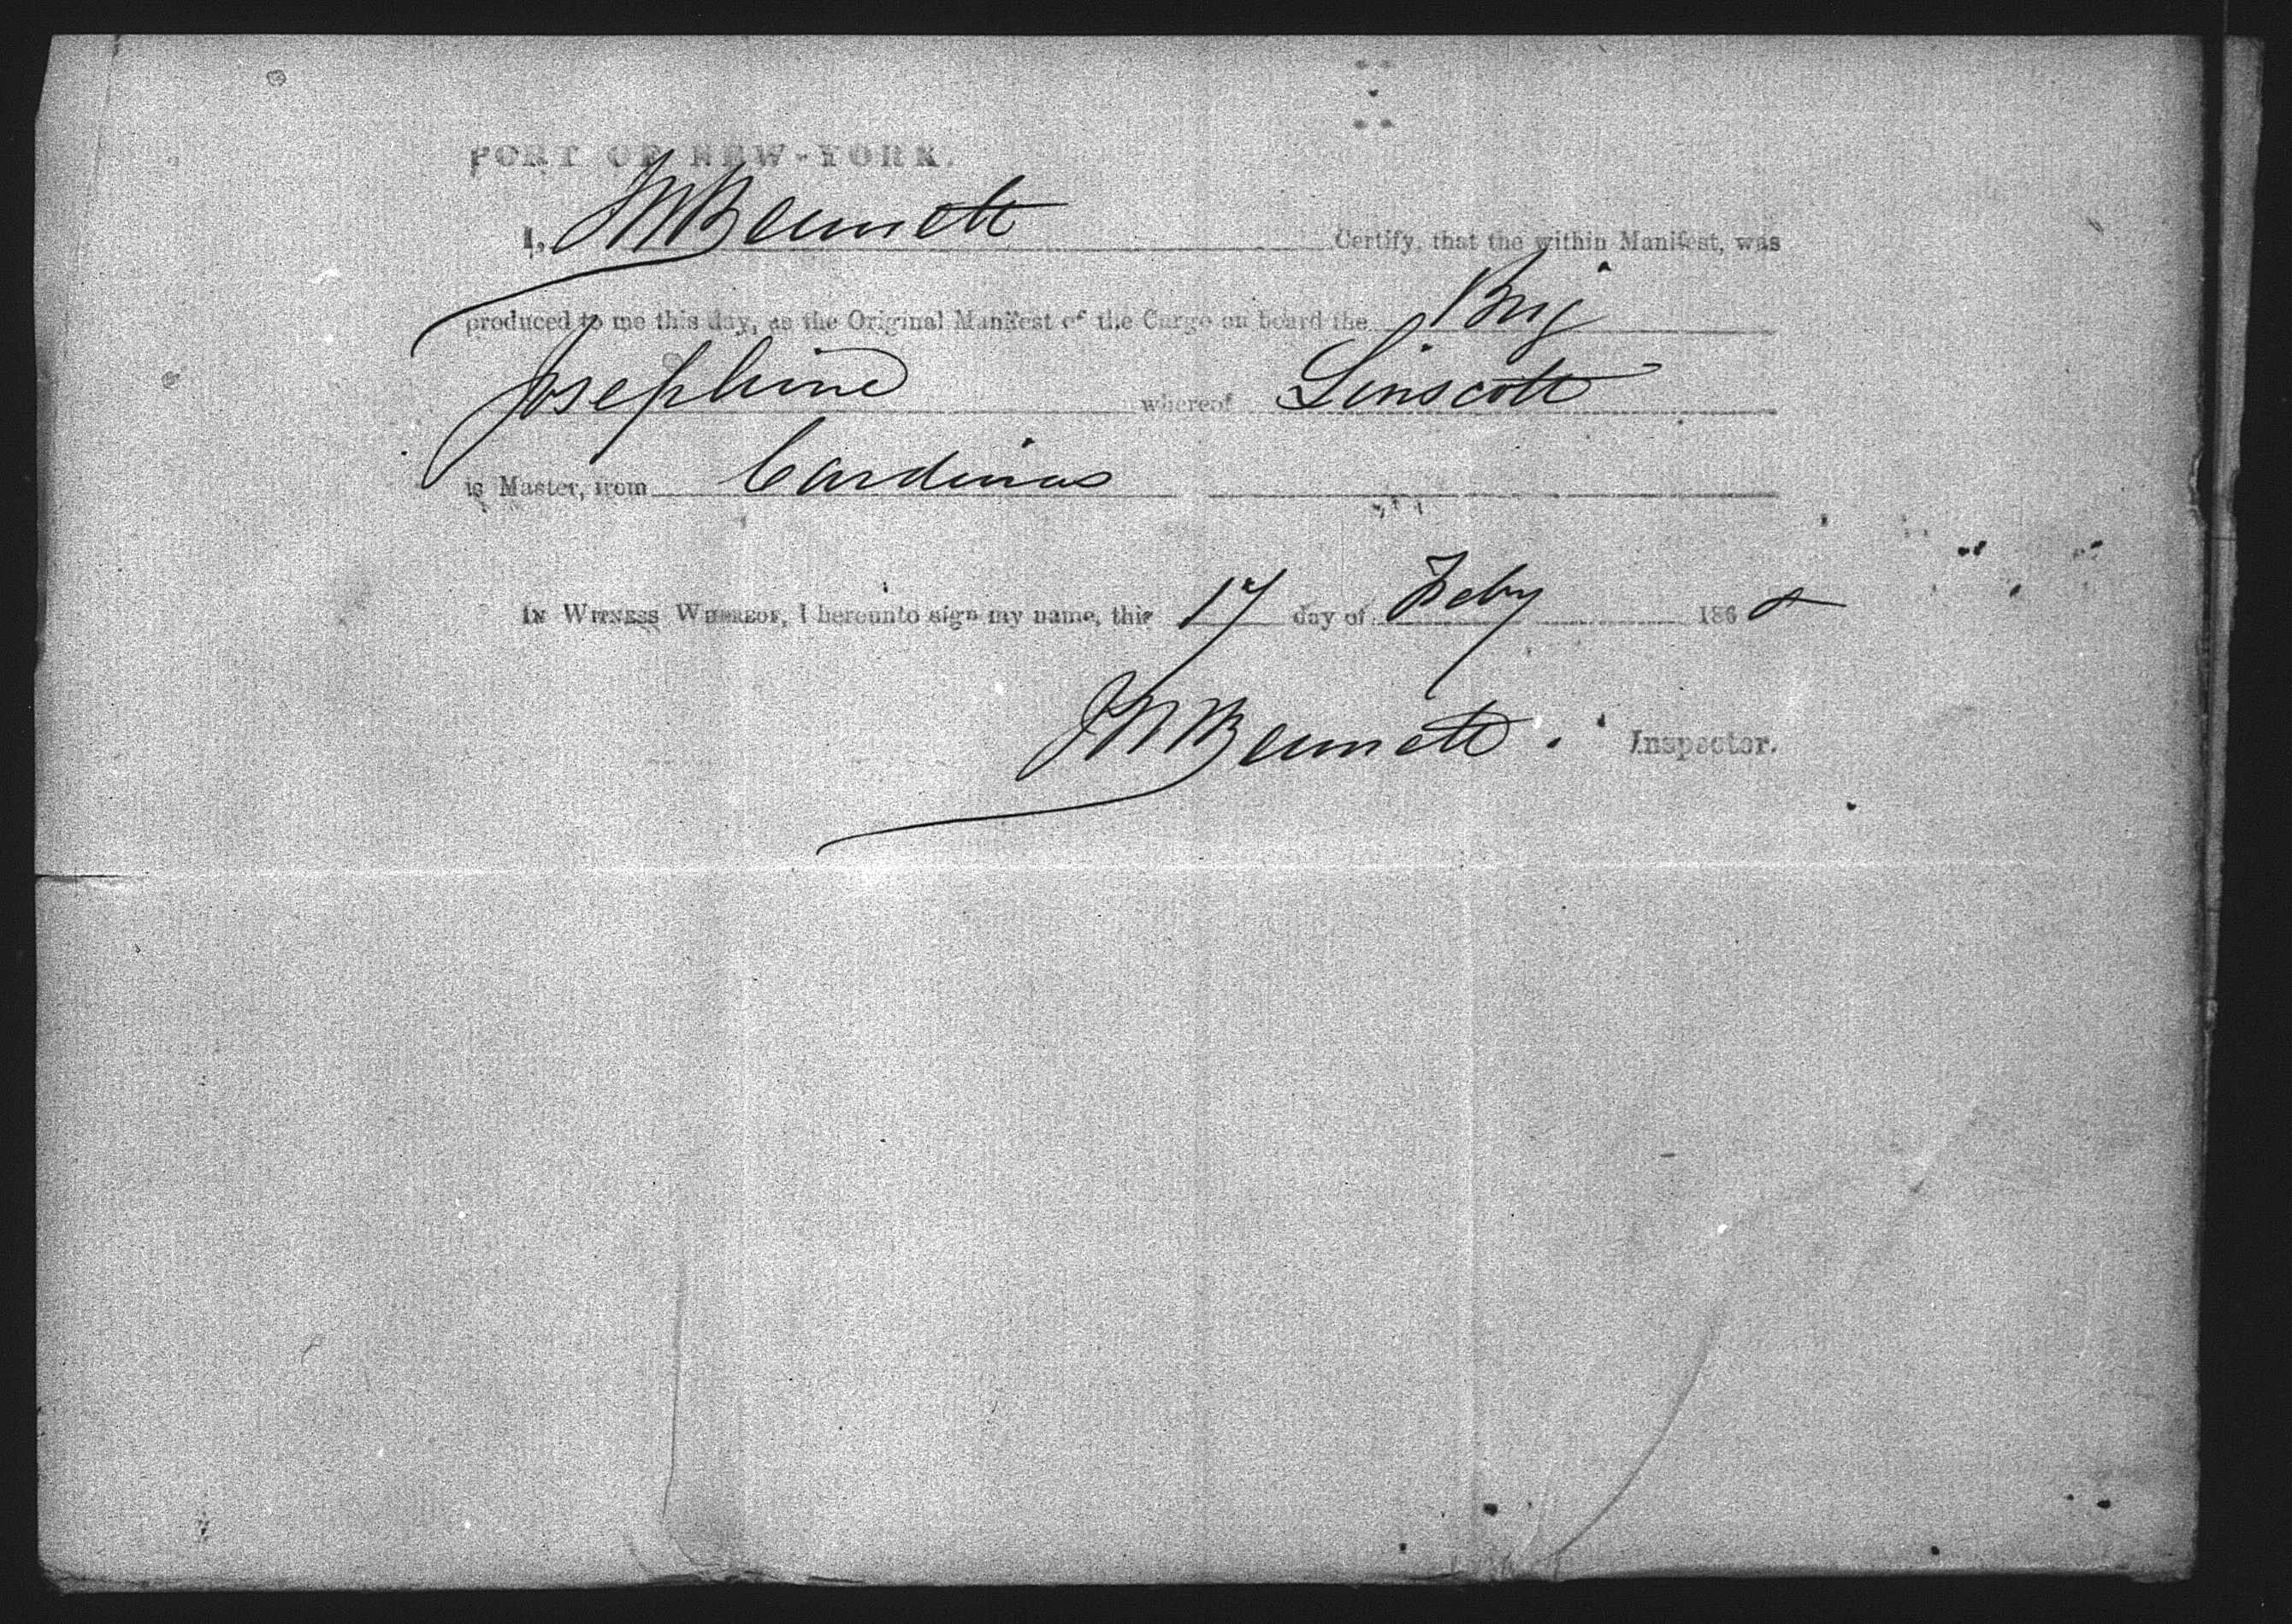 PORT OF NEW-YORK.
I, JWBennett Certify, that the within Manifest, was
produced to me this day, as the Original Manifest of the Cargo on board the Brig
Josephine whereof Linscott
is Master, from Cardinas
IN WITNESS WHEREOF, I hereunto sign my name, this 17 day of Feby 186
JWBennett. Inspector.